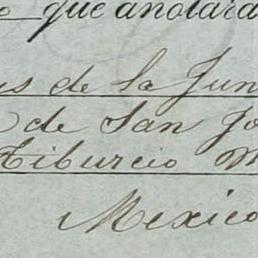 que anotara
s de la Jun
de San Jo
Tiburcio M
Mexico